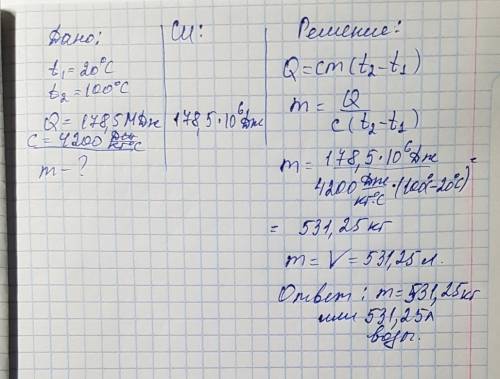 Дано:
t₁=20°C
t₂=100°C
Q=178,5МДж
c=4200 Дж/кг°C
m-?
СИ:
178,5·10⁶Дж
Решение:
Q=cm(t₂-t₁)
m= Q/c(t₂-t₁)
m= 178,5·10⁶Дж/4200 Дж/кг°C·(100°-20°C) =
= 531,25кг
m=V=531,25л.
Ответ: m=531,25кг
или 531,25л
воды.